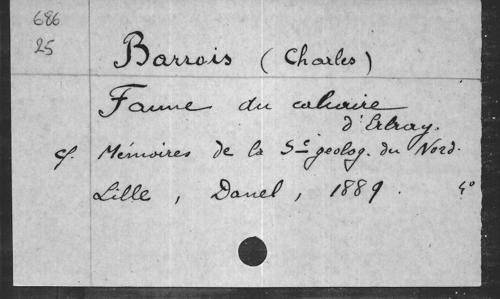 686
25
Barrois (Charles)
Faune du calcaire
d'Erbray.
cf. Mémoires de la Sᵗᵉ geolog. du Nord.
Lille, Danel, 1889. 4°